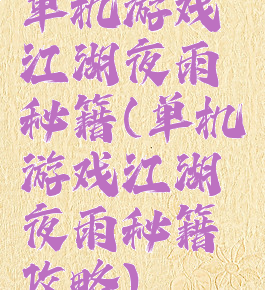 单机游戏
江湖夜雨
秘籍(单机
游戏江湖
夜雨秘籍
攻略)